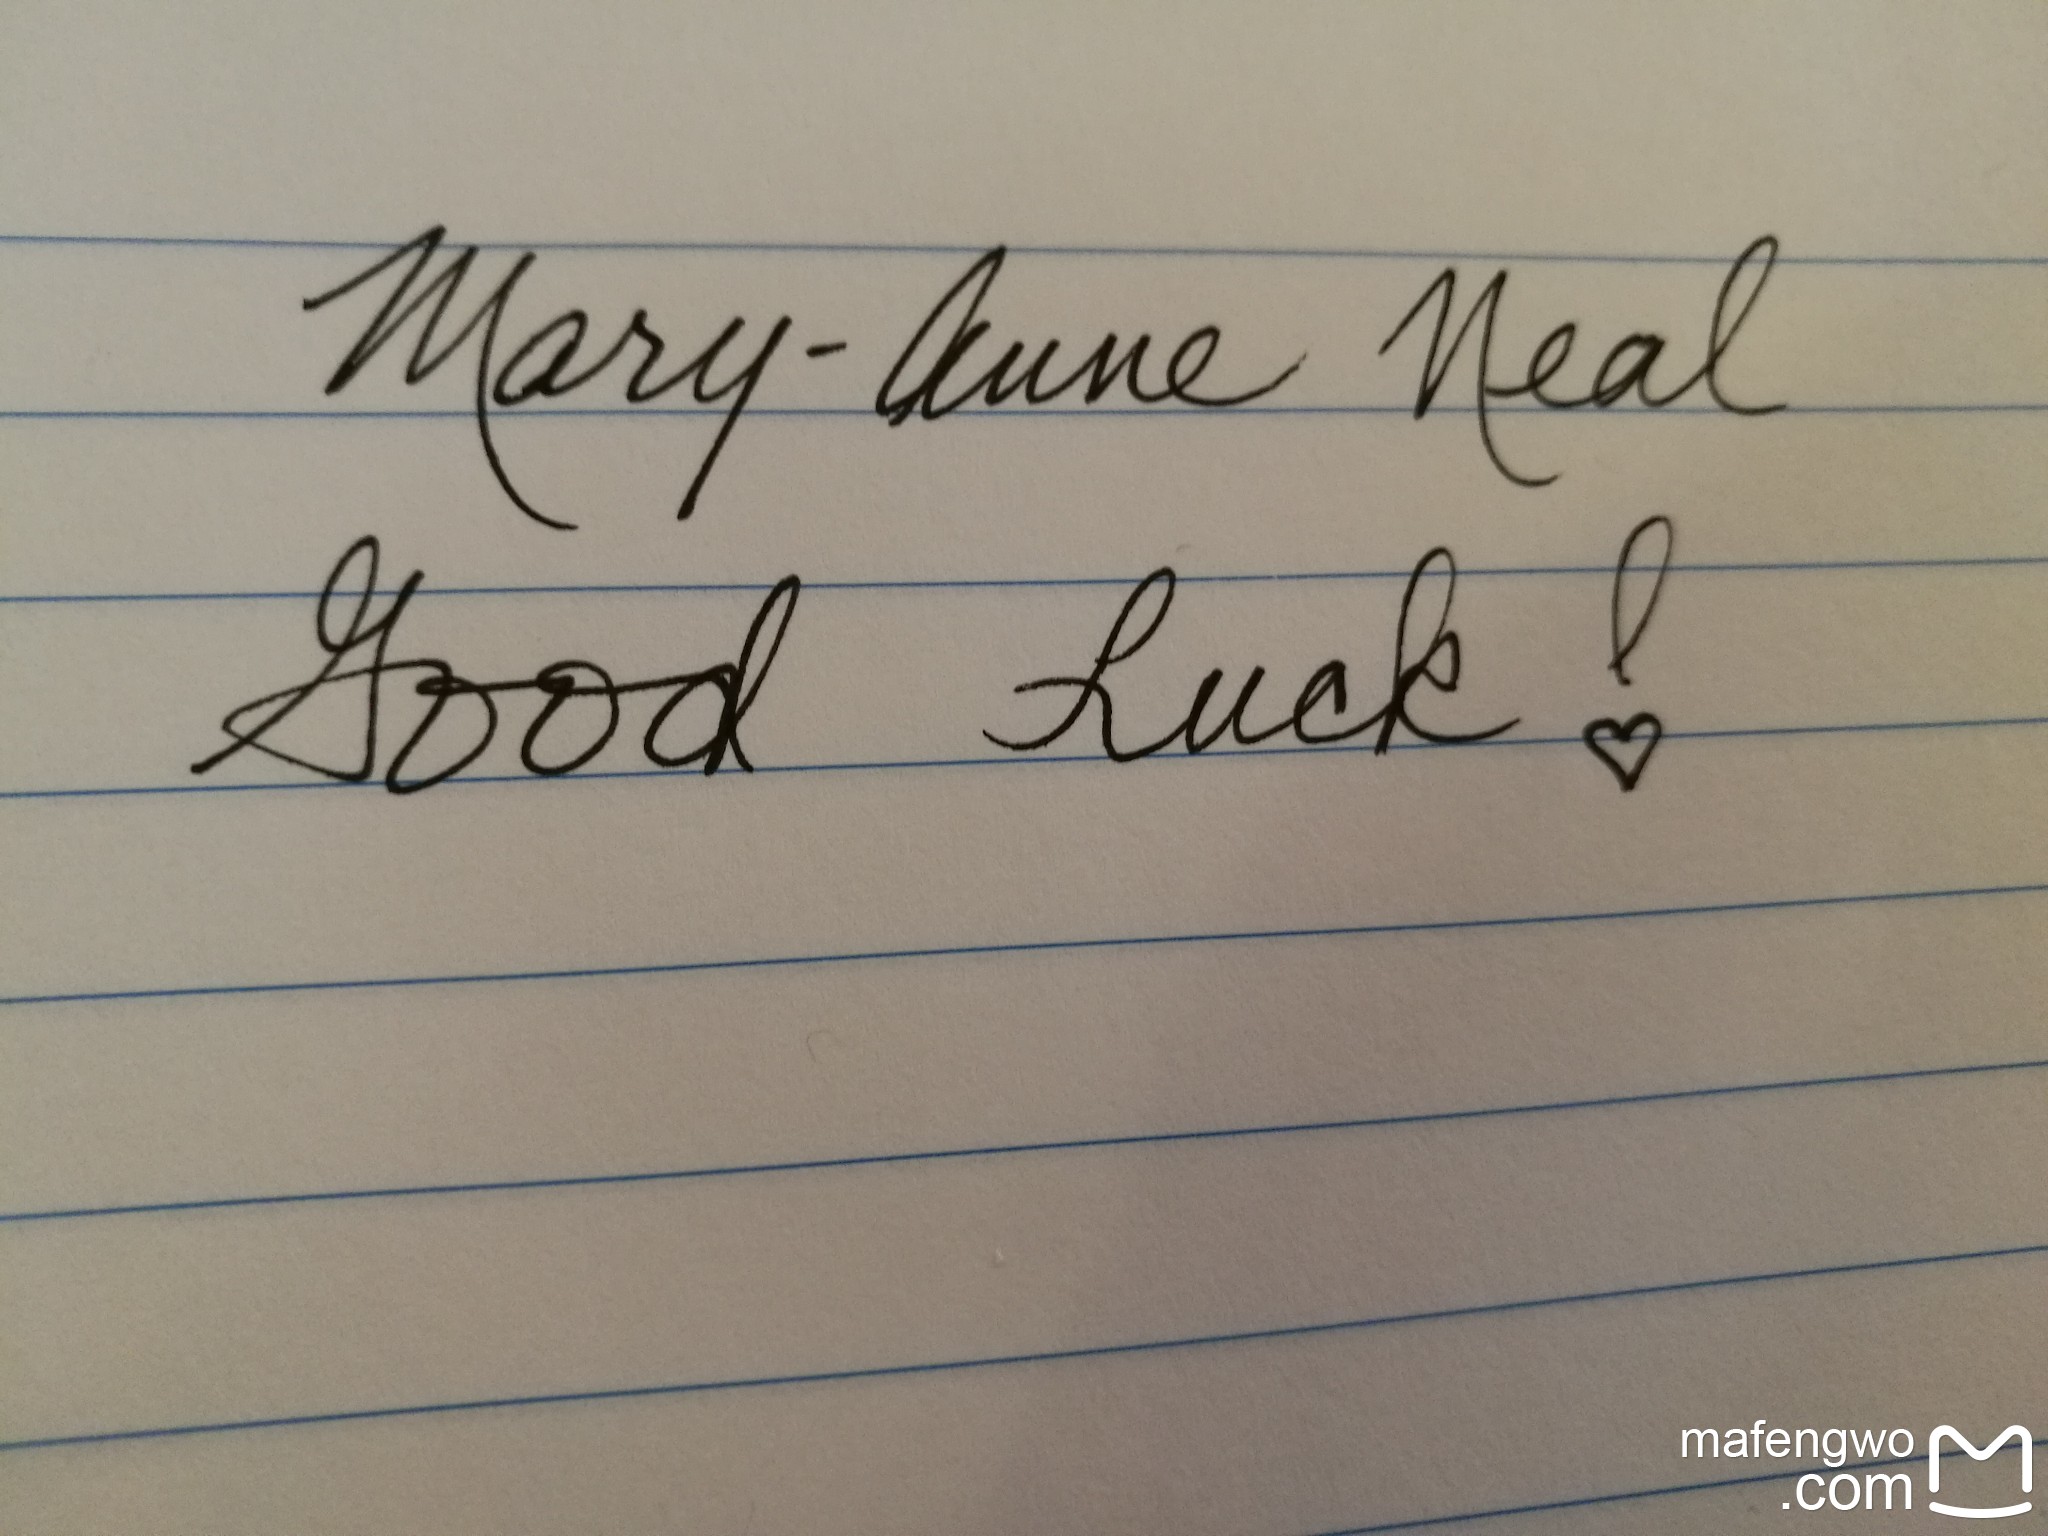 Mary-Anne Neal
Good Luck!
mafengwo
.com